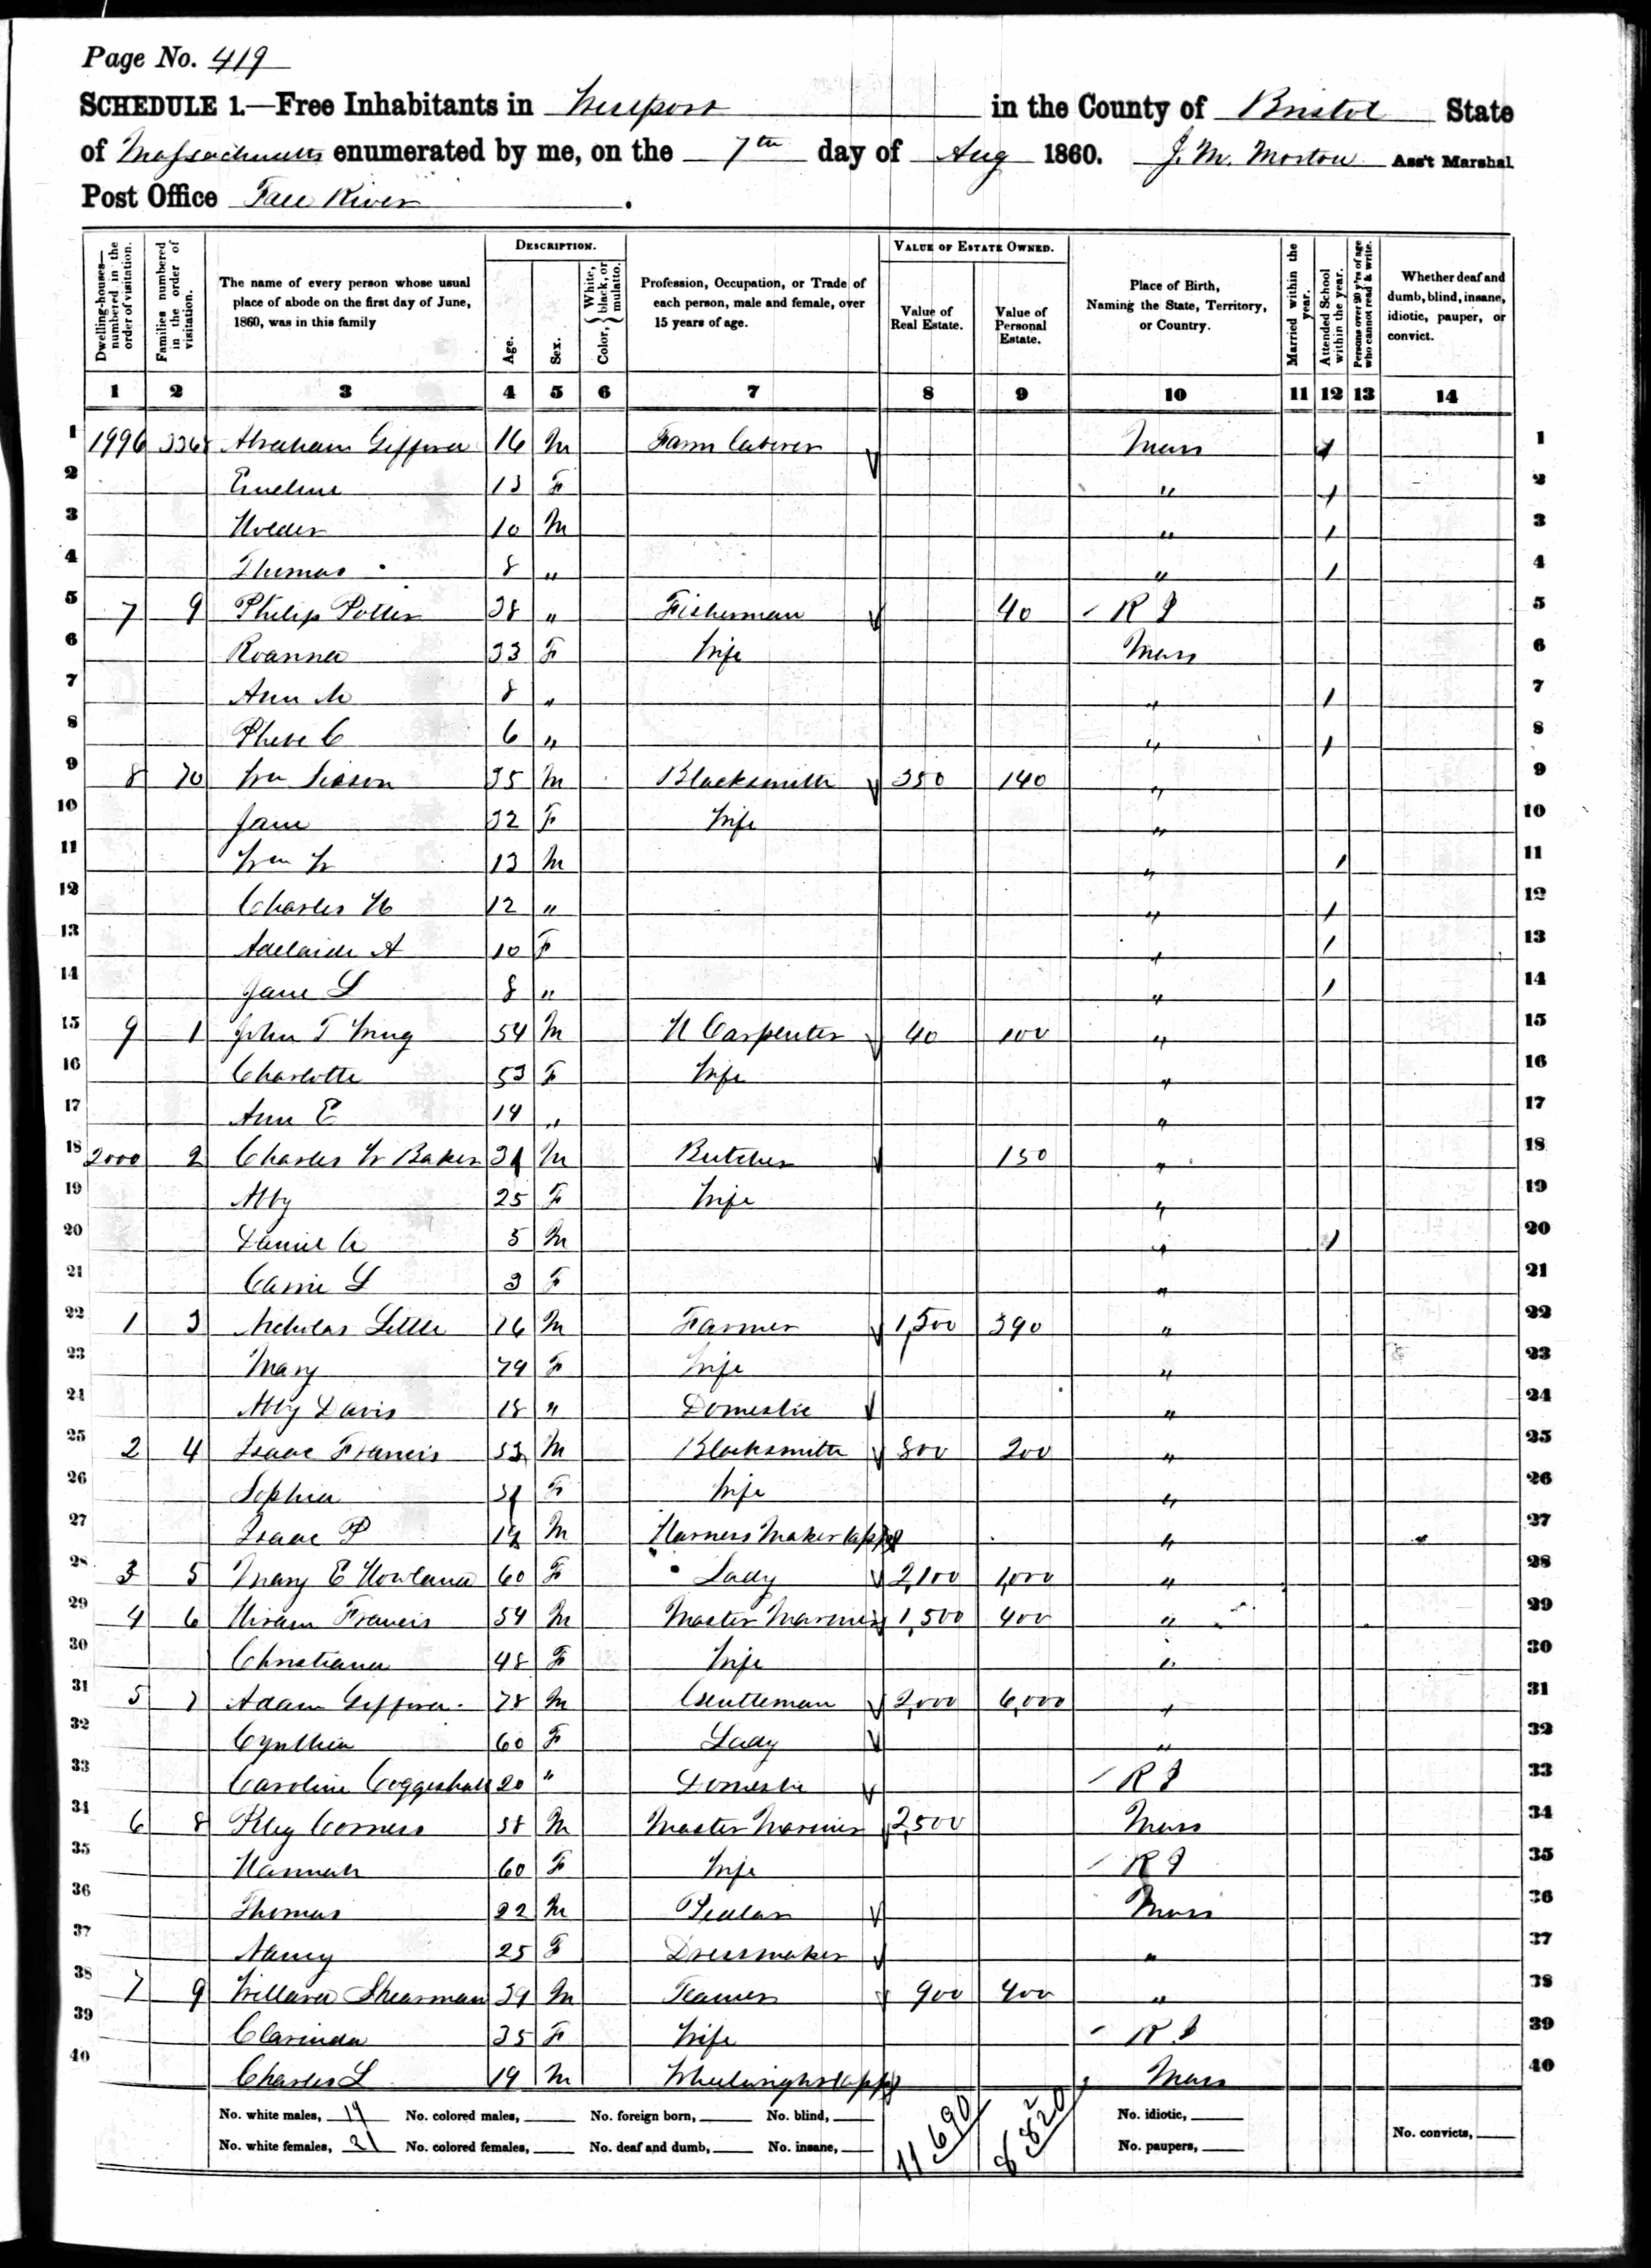 Page No. 419
SCHEDULE 1.—Free Inhabitants in Westport in the County of Bristol State
of Massachusetts enumerated by me, on the 7th day of Aug 1860. J. M. Morton Ass't Marshal
Post Office Fall River.
Dwelling-houses—numbered in the order of visitation.
Families numbered in the order of visitation.
The name of every person whose usual place of abode on the first day of June, 1860, was in this family
DESCRIPTION.
Age.
Sex.
Color, { White, black, or mulatto.
Profession, Occupation, or Trade of each person, male and female, over 15 years of age.
VALUE OF ESTATE OWNED.
Value of Real Estate.
Value of Personal Estate.
Place of Birth, Naming the State, Territory, or Country.
Married within the year.
Attended School within the year.
Persons over 20 y'rs of age who cannot read & write.
Whether deaf and dumb, blind, insane, idiotic, pauper, or convict.
1 2 3 4 5 6 7 8 9 10 11 12 13 14
1 1996 Abraham Gifford 16 M Farm laborer Mass / 1
2 Emeline 13 F " / 2
3 Holder 10 M " / 3
4 Thomas 8 " " / 4
5 7 9 Philip Potter 38 " Fisherman 40 R I 5
6 Roanna 33 F Wife Mass 6
7 Ann M 8 " " / 7
8 Phebe C 6 " " / 8
9 8 70 Wm Sisson 35 M Blacksmith 350 140 " 9
10 Jane 32 F Wife " 10
11 Wm W 13 M " / 11
12 Charles H 12 " " / 12
13 Adelaide A 10 F " / 13
14 Jane L 8 " " / 14
15 9 1 John T Wing 54 M H Carpenter 40 100 " 15
16 Charlotte 53 F Wife " 16
17 Ann E 14 " " 17
18 2000 2 Charles W Baker M Butcher 150 " 18
19 Abby 25 F Wife " 19
20 Daniel 5 M " / 20
21 Carrie L 3 F " 21
22 1 3 Nicholas Little 76 M Farmer 1,500 390 " 22
23 Mary 79 F Wife " 23
24 Abby Davis 18 " Domestic " 24
25 2 4 Isaac Francis 53 M Blacksmith 800 200 " 25
26 Sophia F Wife " 26
27 Isaac P M Harness Maker (app) " 27
28 3 5 Mary E Howland 60 F Lady 2,100 1,000 " 28
29 4 6 Hiram Francis 54 M Master Mariner 1,500 400 " 29
30 Christiana 48 F Wife " 30
31 5 7 Adam Gifford 78 M Gentleman 2,000 6,000 " 31
32 Cynthia 60 F Lady " 32
33 Caroline Coggeshall 20 " Domestic R I 33
34 6 8 Peleg Cornell 58 M Master Mariner 2,500 Mass 34
35 Hannah 60 F Wife R I 35
36 Thomas 22 M Pedlar Mass 36
37 Nancy 25 F Dressmaker " 37
38 7 9 Willard Shearman 39 M Teamer 900 400 " 38
39 Clarinda 35 F Wife R I 39
40 Charles L 19 M Wheelwright (app) Mass 40
No. white males, 19 No. colored males, No. foreign born, No. blind, 11690 8820 No. idiotic,
No. white females, 21 No. colored females, No. deaf and dumb, No. insane, No. paupers, No. convicts,